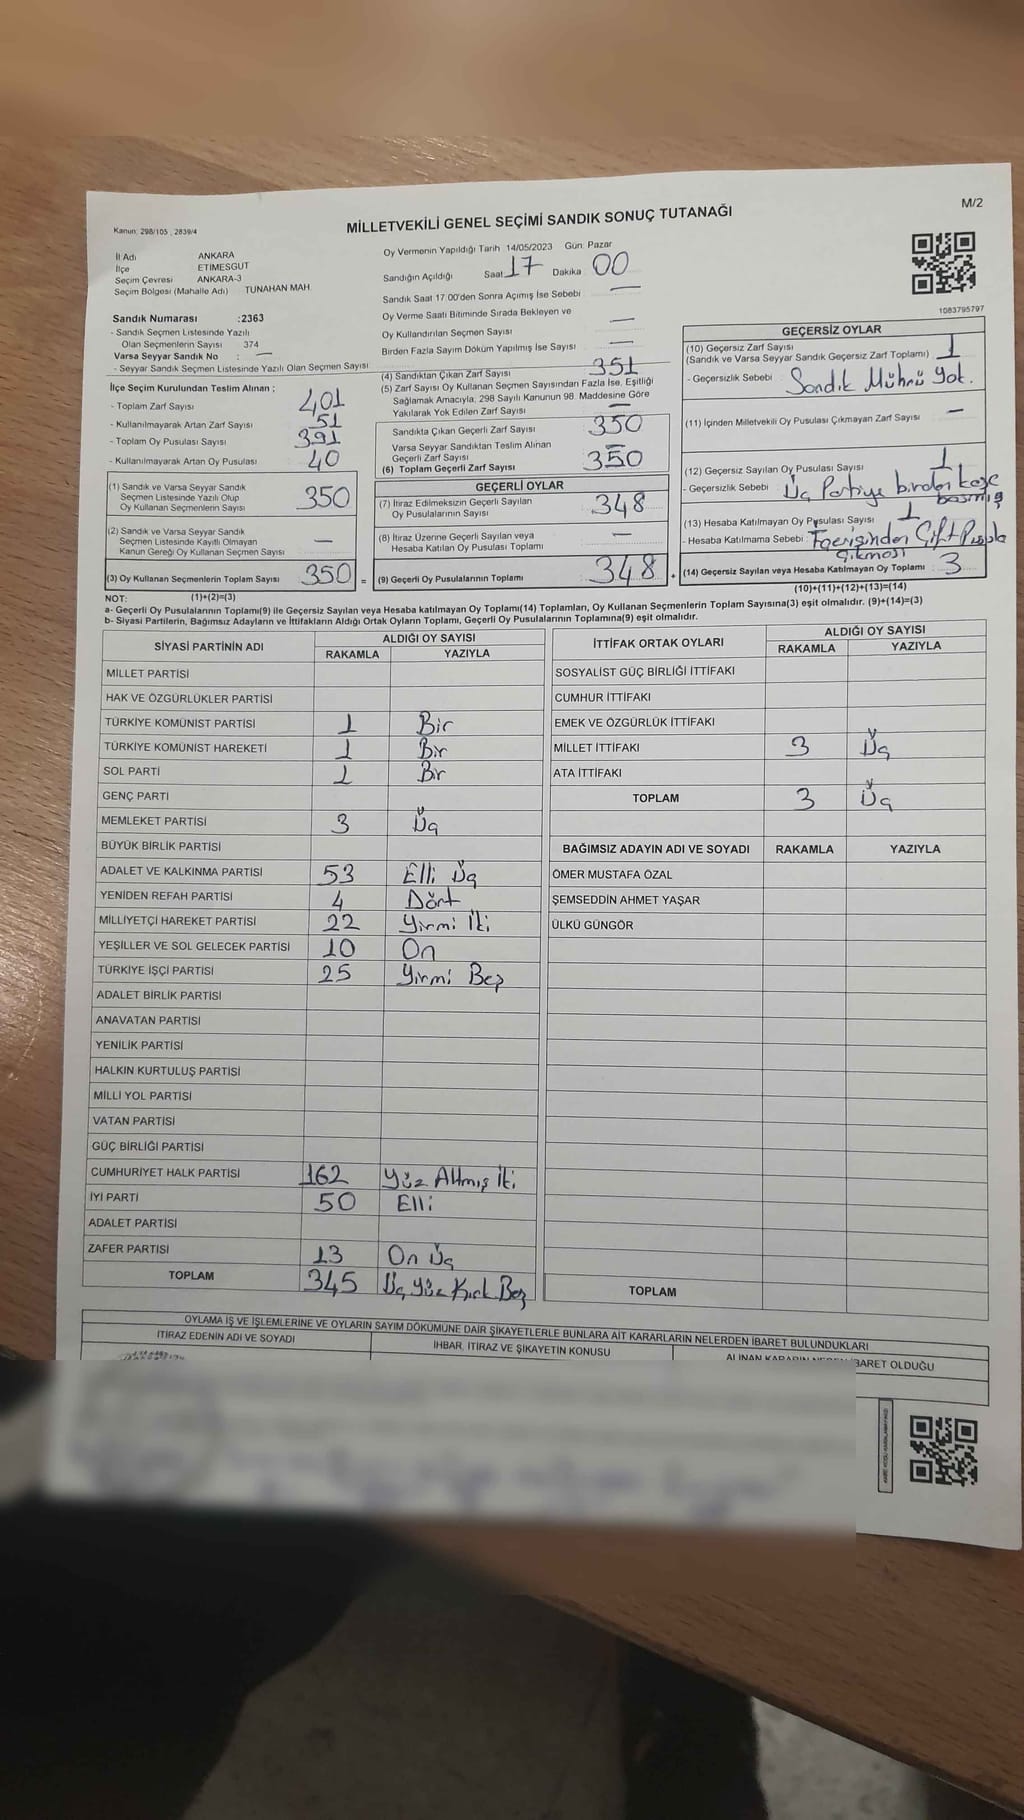 M/2
MİLLETVEKİLİ GENEL SEÇİMİ SANDIK SONUÇ TUTANAĞI
Kanun: 298/105 , 2839/4
İl Adı ANKARA
İlçe ETİMESGUT
Seçim Çevresi ANKARA-3
Seçim Bölgesi (Mahalle Adı) TUNAHAN MAH.
Sandık Numarası :2363
- Sandık Seçmen Listesinde Yazılı
Olan Seçmenlerin Sayısı 374
Varsa Seyyar Sandık No : —
- Seyyar Sandık Seçmen Listesinde Yazılı Olan Seçmen Sayısı
İlçe Seçim Kurulundan Teslim Alınan ;
- Toplam Zarf Sayısı 401
- Kullanılmayarak Artan Zarf Sayısı 51
- Toplam Oy Pusulası Sayısı 391
- Kullanılmayarak Artan Oy Pusulası 40
(1) Sandık ve Varsa Seyyar Sandık
Seçmen Listesinde Yazılı Olup
Oy Kullanan Seçmenlerin Sayısı 350
(2) Sandık ve Varsa Seyyar Sandık
Seçmen Listesinde Kayıtlı Olmayan
Kanun Gereği Oy Kullanan Seçmen Sayısı —
(3) Oy Kullanan Seçmenlerin Toplam Sayısı 350 =
(1)+(2)=(3)
Oy Vermenin Yapıldığı Tarih 14/05/2023 Gün: Pazar
Sandığın Açıldığı Saat 17 Dakika 00
Sandık Saat 17.00'den Sonra Açımış İse Sebebi —
Oy Verme Saati Bitiminde Sırada Bekleyen ve
Oy Kullandırılan Seçmen Sayısı —
Birden Fazla Sayım Döküm Yapılmış İse Sayısı —
(4) Sandıktan Çıkan Zarf Sayısı 351
(5) Zarf Sayısı Oy Kullanan Seçmen Sayısından Fazla İse, Eşitliği
Sağlamak Amacıyla, 298 Sayılı Kanunun 98. Maddesine Göre
Yakılarak Yok Edilen Zarf Sayısı —
Sandıkta Çıkan Geçerli Zarf Sayısı 350
Varsa Seyyar Sandıktan Teslim Alınan
Geçerli Zarf Sayısı —
(6) Toplam Geçerli Zarf Sayısı 350
GEÇERLİ OYLAR
(7) İtiraz Edilmeksizin Geçerli Sayılan
Oy Pusulalarının Sayısı 348
(8) İtiraz Üzerine Geçerli Sayılan veya
Hesaba Katılan Oy Pusulası Toplamı —
(9) Geçerli Oy Pusulalarının Toplamı 348 +
1083795797
GEÇERSİZ OYLAR
(10) Geçersiz Zarf Sayısı
(Sandık ve Varsa Seyyar Sandık Geçersiz Zarf Toplamı) 1
- Geçersizlik Sebebi : Sandık Mührü Yok.
(11) İçinden Milletvekili Oy Pusulası Çıkmayan Zarf Sayısı —
(12) Geçersiz Sayılan Oy Pusulası Sayısı 1
- Geçersizlik Sebebi : Üç Partiye birden kaşe
basmış
(13) Hesaba Katılmayan Oy Pusulası Sayısı 1
- Hesaba Katılmama Sebebi : İçerisinden Çift Pusula
Çıkması
(14) Geçersiz Sayılan veya Hesaba Katılmayan Oy Toplamı 3
(10)+(11)+(12)+(13)=(14)
NOT:
a- Geçerli Oy Pusulalarının Toplamı(9) ile Geçersiz Sayılan veya Hesaba katılmayan Oy Toplamı(14) Toplamları, Oy Kullanan Seçmenlerin Toplam Sayısına(3) eşit olmalıdır. (9)+(14)=(3)
b- Siyasi Partilerin, Bağımsız Adayların ve İttifakların Aldığı Ortak Oyların Toplamı, Geçerli Oy Pusulalarının Toplamına(9) eşit olmalıdır.
SİYASİ PARTİNİN ADI ALDIĞI OY SAYISI
RAKAMLA YAZIYLA
MİLLET PARTİSİ
HAK VE ÖZGÜRLÜKLER PARTİSİ
TÜRKİYE KOMÜNİST PARTİSİ 1 Bir
TÜRKİYE KOMÜNİST HAREKETİ 1 Bir
SOL PARTİ 1 Bir
GENÇ PARTİ
MEMLEKET PARTİSİ 3 Üç
BÜYÜK BİRLİK PARTİSİ
ADALET VE KALKINMA PARTİSİ 53 Elli Üç
YENİDEN REFAH PARTİSİ 4 Dört
MİLLİYETÇİ HAREKET PARTİSİ 22 Yirmi İki
YEŞİLLER VE SOL GELECEK PARTİSİ 10 On
TÜRKİYE İŞÇİ PARTİSİ 25 Yirmi Beş
ADALET BİRLİK PARTİSİ
ANAVATAN PARTİSİ
YENİLİK PARTİSİ
HALKIN KURTULUŞ PARTİSİ
MİLLİ YOL PARTİSİ
VATAN PARTİSİ
GÜÇ BİRLİĞİ PARTİSİ
CUMHURİYET HALK PARTİSİ 162 Yüz Altmış İki
İYİ PARTİ 50 Elli
ADALET PARTİSİ
ZAFER PARTİSİ 13 On Üç
TOPLAM 345 Üç Yüz Kırk Beş
İTTİFAK ORTAK OYLARI ALDIĞI OY SAYISI
RAKAMLA YAZIYLA
SOSYALİST GÜÇ BİRLİĞİ İTTİFAKI
CUMHUR İTTİFAKI
EMEK VE ÖZGÜRLÜK İTTİFAKI
MİLLET İTTİFAKI 3 Üç
ATA İTTİFAKI
TOPLAM 3 Üç
BAĞIMSIZ ADAYIN ADI VE SOYADI RAKAMLA YAZIYLA
ÖMER MUSTAFA ÖZAL
ŞEMSEDDİN AHMET YAŞAR
ÜLKÜ GÜNGÖR
TOPLAM
OYLAMA İŞ VE İŞLEMLERİNE VE OYLARIN SAYIM DÖKÜMÜNE DAİR ŞİKAYETLERLE BUNLARA AİT KARARLARIN NELERDEN İBARET BULUNDUKLARI
İTİRAZ EDENİN ADI VE SOYADI İHBAR, İTİRAZ VE ŞİKAYETİN KONUSU ALINAN KARARIN NEDEN İBARET OLDUĞU